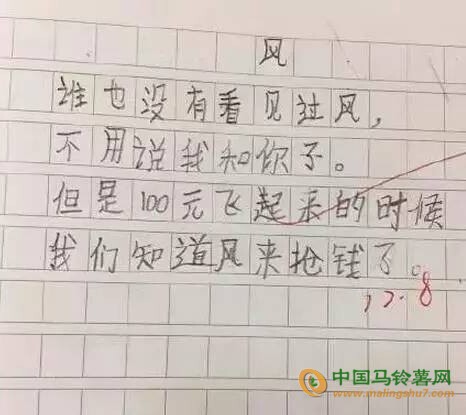 风
谁也没有看见过风,
不用说我知你子。
但是100元飞起来的时候
我们知道风来抢钱了。
12.8
中国马铃薯网
www.malingshu7.com